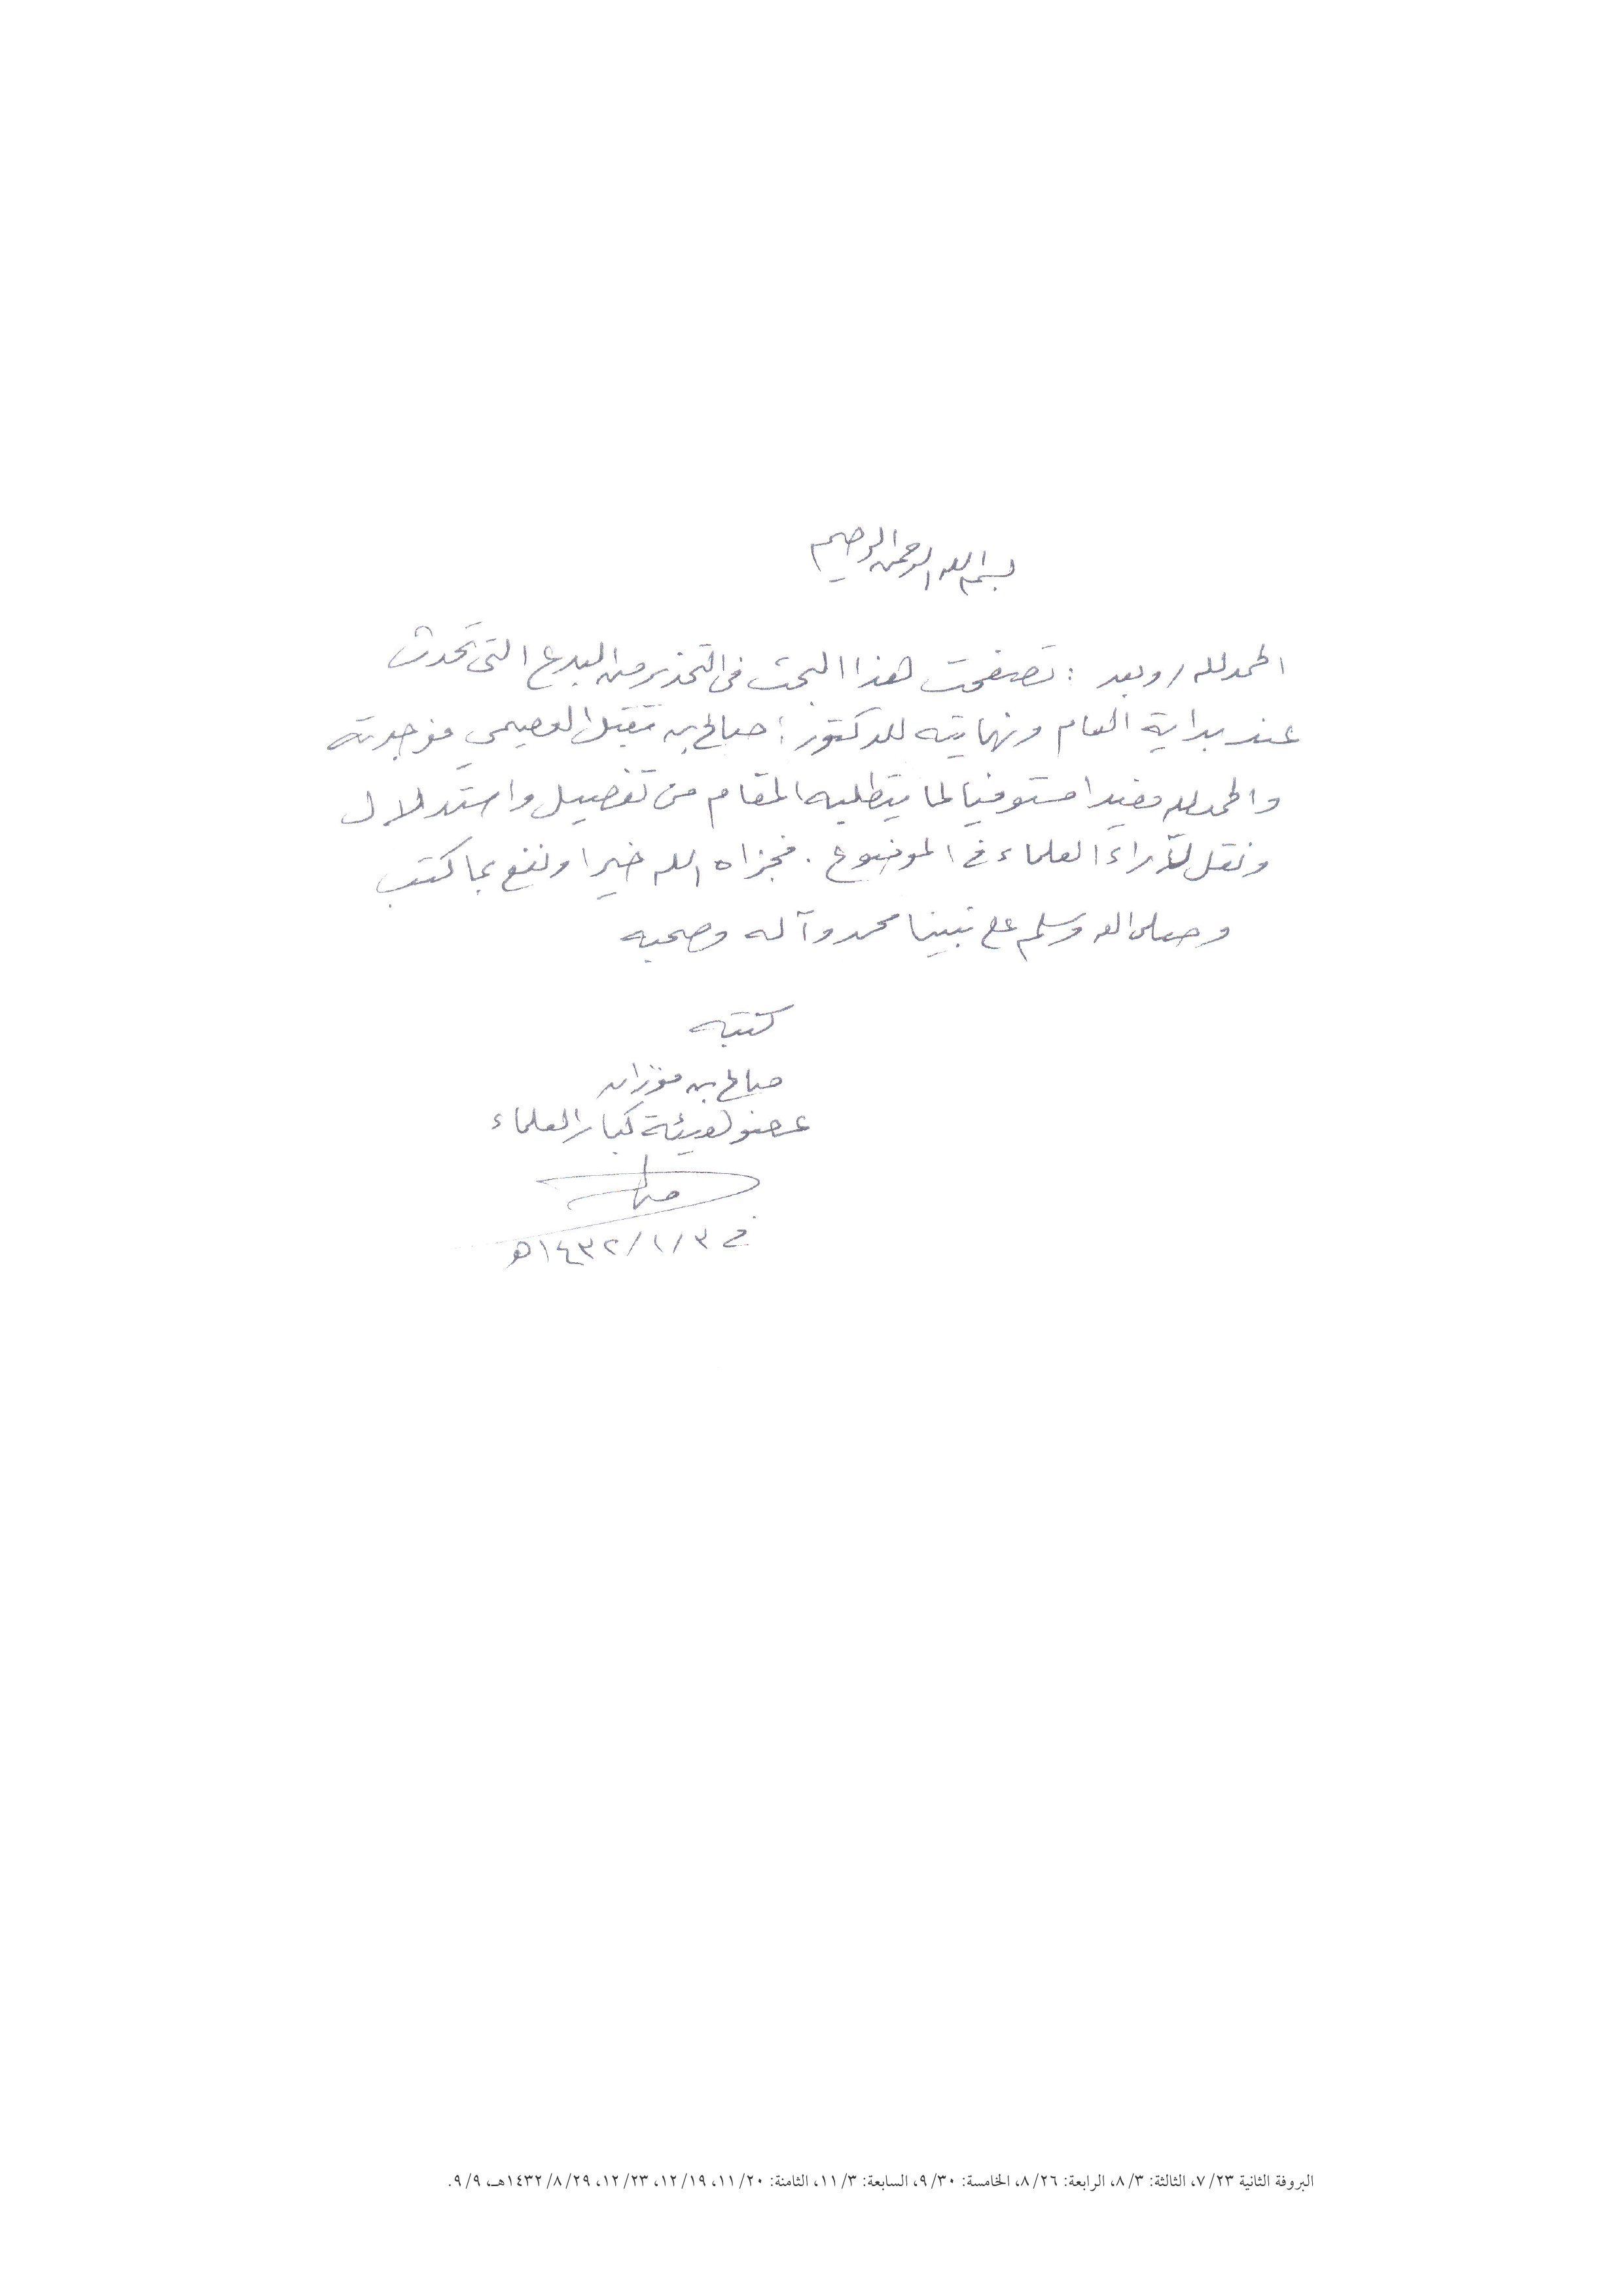 بسم الله الرحمن الرحيم
الحمد لله / وبعد : تصفحت هذا البحث في التحذير من البدع التي تحدث
عند بداية العام ونهايته للدكتور : صالح بن مقبل العصيمي فوجدته
والحمد لله مفيدا مستوفيا لما يتطلبه المقام من تفصيل واستدلال
ونقل لآراء العلماء في الموضوع . فجزاه الله خيرا ونفع بما كتب
وصلى الله وسلم على نبينا محمد وآله وصحبه
كتبه
صالح بن فوزان
عضو هيئة كبار العلماء
في ٣/١/١٤٣٢هـ
البروفة الثانية ٧/٢٣، الثالثة: ٨/٣، الرابعة: ٨/٢٦، الخامسة: ٩/٣٠، السابعة: ١١/٣، الثامنة: ١١/٢٠، ١٢/١٩، ١٢/٢٣، ١٤٣٢/٨/٢٩هـ، ٩/٩.